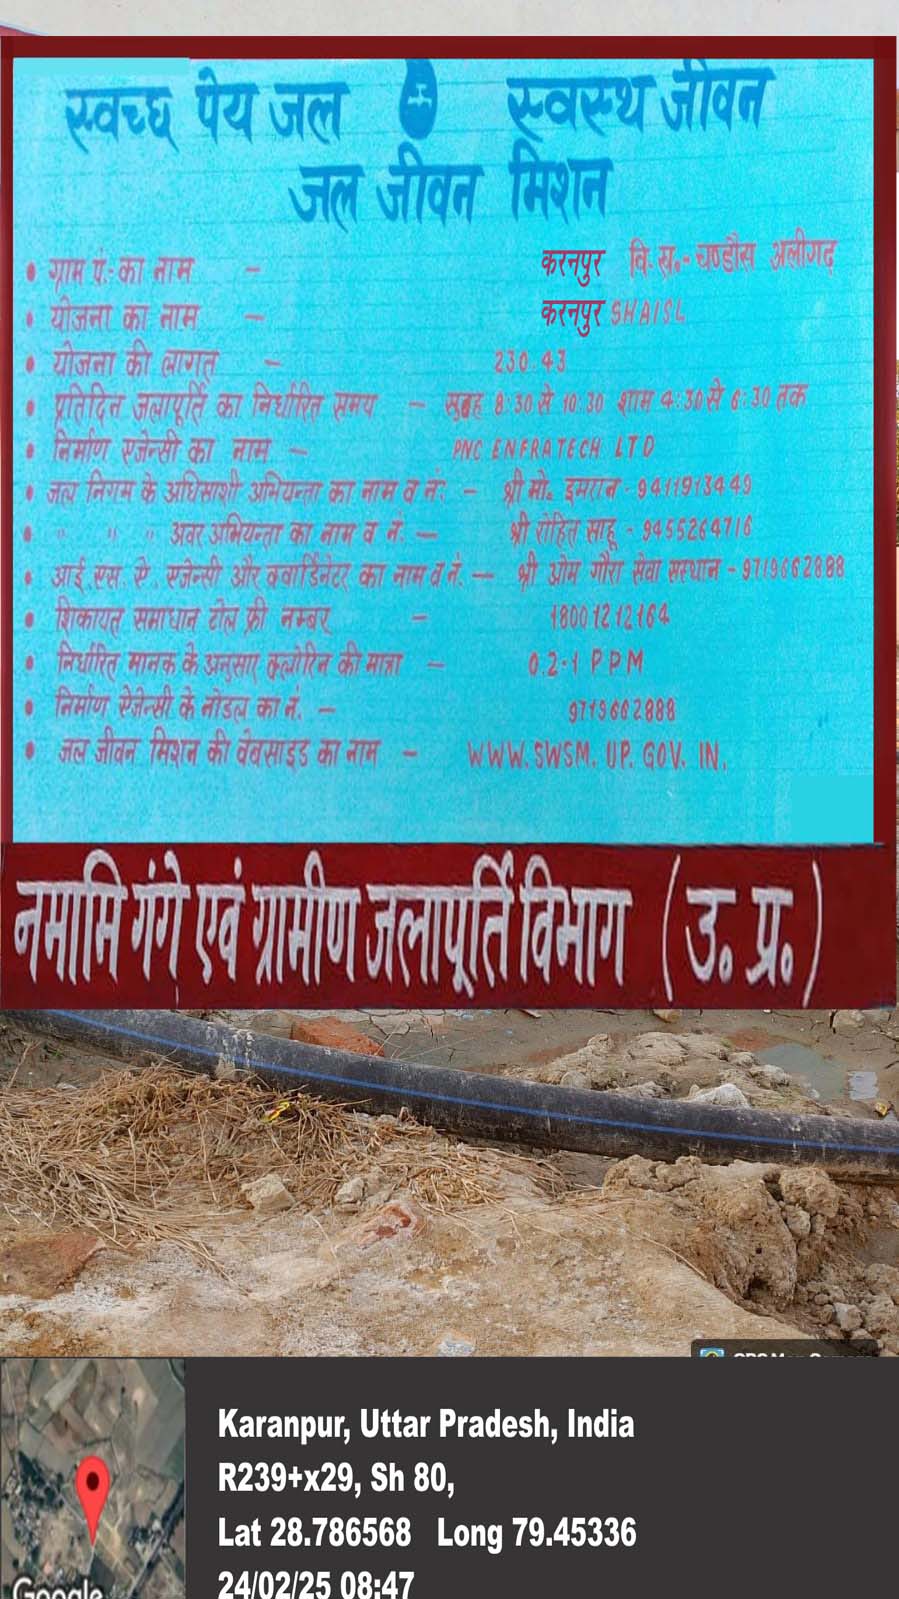 स्वच्छ पेय जल स्वस्थ जीवन
जल जीवन मिशन
• ग्राम पं:- का नाम - करनपुर वि. ख.- चण्डौस अलीगढ़
• योजना का नाम - करनपुर SHAISL
• योजना की लागत् - 230.43
• प्रतिदिन जलापूर्ति का निर्धारित समय - सुबह 8:30 से 10:30 शाम 4:30 से 6:30 तक
• निर्माण एजेन्सी का नाम - PNC ENFRATECH LTD
• जल निगम के अधिसाशी अभियन्ता का नाम व नं: - श्री मो. इमरान - 9411913449
• " " " अवर अभियन्ता का नाम व नं. - श्री रोहित साहू - 9455264716
• आई. एस. ऐ. एजेन्सी और क्वार्डिनेटर का नाम व नं. - श्री ओम गौरा सेवा सस्थान - 9719662888
• शिकायत समाधान टोल फ्री नम्बर - 18001212164
• निर्धारित मानक के अनुसार क्लोरिन की मात्रा - 0.2-1 PPM
• निर्माण ऐजेन्सी के नोडल का नं. - 9719662888
• जल जीवन मिशन की वेबसाइड का नाम - WWW.SWSM.UP.GOV.IN.
नमामि गंगे एवं ग्रामीण जलापूर्ति विभाग (उ. प्र.)
Karanpur, Uttar Pradesh, India
R239+x29, Sh 80,
Lat 28.786568 Long 79.45336
24/02/25 08:47
Google